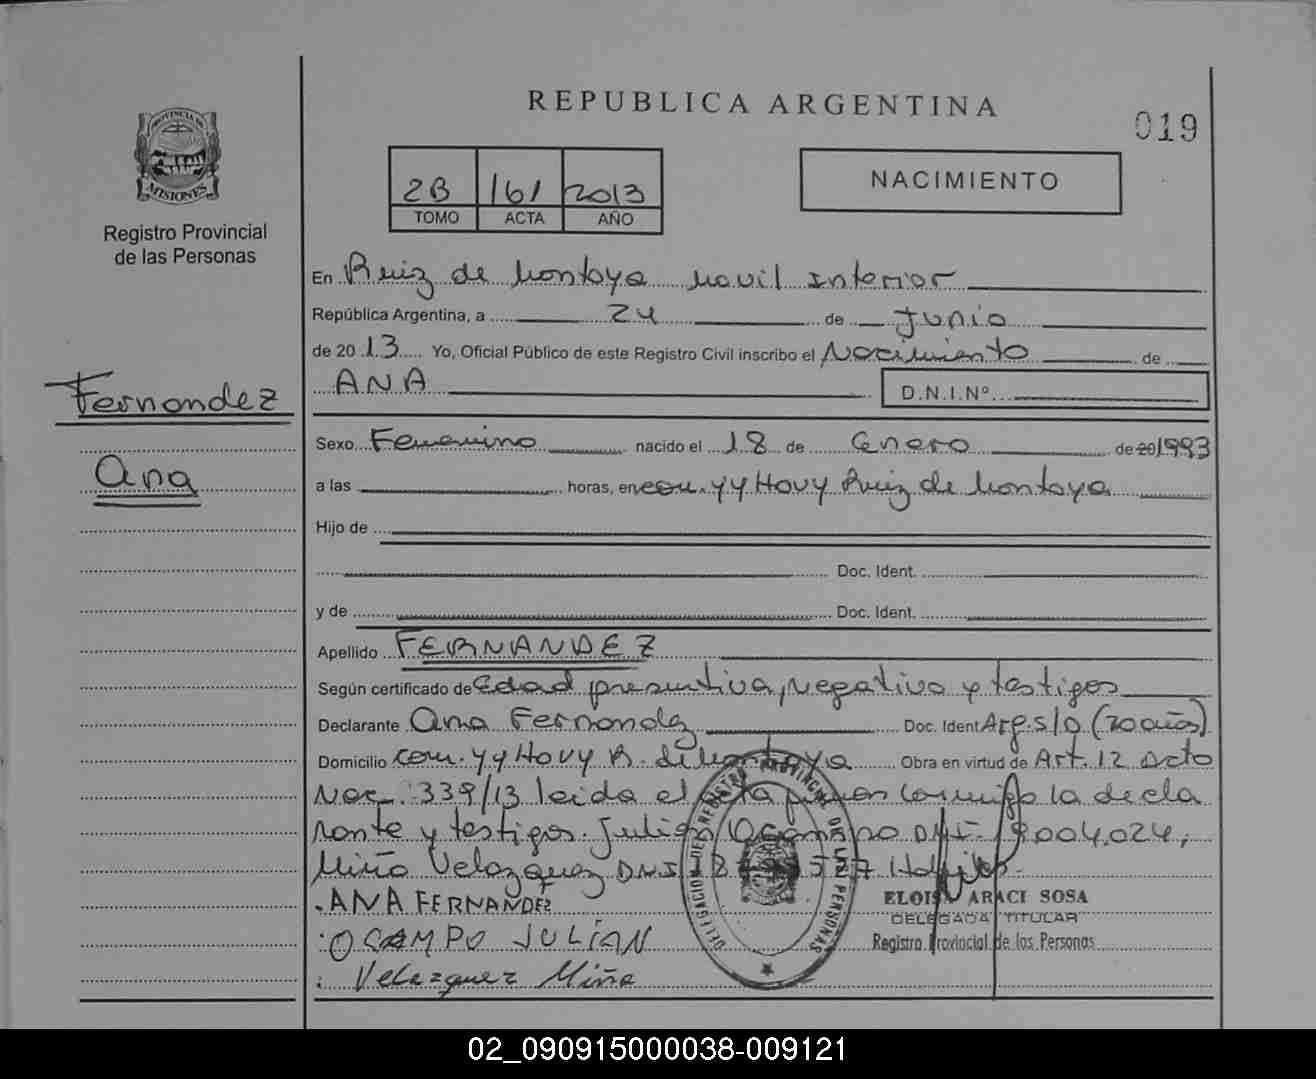 REPUBLICA ARGENTINA
019
PROVINCIA DE MISIONES
Registro Provincial
de las Personas
2B 161 2013
TOMO ACTA AÑO
NACIMIENTO
En Ruiz de Montoya Movil Interior
República Argentina, a 24 de Junio
de 2013 Yo, Oficial Público de este Registro Civil inscribo el Nacimiento de
ANA D.N.I.Nº
Fernandez
Ana
Sexo Femenino nacido el 18 de Enero de 20 1993
a las horas, en com. YY Hovy Ruiz de Montoya
Hijo de
Doc. Ident.
y de Doc. Ident.
Apellido FERNANDEZ
Según certificado de Edad presuntiva, negativo y testigos
Declarante Ana Fernandez Doc. Ident Arg. s/d (20 años)
Domicilio com. YY Hovy R. de Montoya Obra en virtud de Art. 12 Acto
Nac. 339/13 leida el acta firman conmigo la decla
rante y testigos. Julian Ocampo DNI 004.024,
Miño Velazquez DNI 527
.ANA FERNANDEZ
:OCAMPO JULIAN
: Velazquez Miño
DELEGACION DEL REGISTRO PROVINCIAL DE LAS PERSONAS
ELOISA ARACI SOSA
DELEGADA TITULAR
Registro Provincial de las Personas
02_090915000038-009121